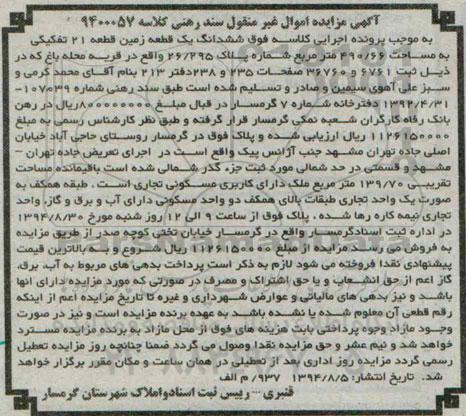 آگهی مزایده اموال غیر منقول سند رهنی کلاسه ۹۴۰۰۰۵۷
به موجب پرونده اجرایی کلاسه فوق ششدانگ یک قطعه زمین قطعه ۲۱ تفکیکی
به مساحت ۳۹۰/۶۶ متر مربع شماره پلاک ۲۶/۲۹۵ واقع در قریه محله باغ که در
ذیل ثبت ۶۷۶۱ و ۳۶۷۶۰ صفحات ۲۳۵ و ۲۳۸دفتر ۲۱۳ بنام آقای محمد کرمی و
سبز علی آهوی سیمین و صادر و تسلیم شده است طبق سند رهنی شماره ۱۰۷۰۳۹-
۱۳۹۲/۴/۳۱ دفترخانه شماره ۷ گرمسار در قبال مبلغ ۸۰۰۰۰۰۰۰۰ریال در رهن
بانک رفاه کارگران شعبه نمکی گرمسار قرار گرفته و طبق نظر کارشناس رسمی به مبلغ
۱۱۲۶۱۵۰۰۰۰ ریال ارزیابی شده و پلاک فوق در گرمسار روستای حاجی آباد خیابان
اصلی جاده تهران مشهد جنب آژانس پیک واقع است در اجرای تعریض جاده تهران –
مشهد و قسمتی در حد شمالی مورد ثبت جزء گذر شمالی شده است باقیمانده مساحت
تقریبی ۱۳۹/۷۰ متر مربع ملک دارای کاربری مسکونی تجاری است ، طبقه همکف به
صورت یک واحد تجاری طبقات بالای همکف دو واحد مسکونی دارای آب و برق و گاز، واحد
تجاری نیمه کاره رها شده ، پلاک فوق از ساعت ۹ الی ۱۲ روز شنبه مورخ ۱۳۹۴/۸/۳۰
در اداره ثبت اسنادگرمسار واقع در گرمسار خیابان تختی کوچه صدر از طریق مزایده
به فروش می رسد مزایده از مبلغ ۱۱۲۶۱۵۰۰۰۰ ریال شروع و به بالاترین قیمت
پیشنهادی نقدا فروخته می شود لازم به ذکر است پرداخت بدهی های مربوط به آب، برق،
گاز اعم از حق انشعاب و یا حق اشتراک و مصرف در صورتی که مورد مزایده دارای انها
باشد و نیز بدهی های مالیاتی و عوارض شهرداری و غیره تا تاریخ مزایده اعم از اینکه
رقم قطعی آن معلوم شده یا نشده باشد به عهده برنده مزایده است و نیز در صورت
وجود مازاد وجوه پرداختی بابت هزینه های فوق از محل مازاد به برنده مزایده مسترد
خواهد شد و نیم عشر و حق مزایده نقدا وصول می گردد ضمنا چنانچه روز مزایده تعطیل
رسمی گردد مزایده روز اداری بعد از تعطیلی در همان ساعت و مکان مقرر برگزار خواهد
شد. تاریخ انتشار: ۱۳۹۴/۸/۵ ۹۳۷/ م الف
قنبری – رییس ثبت اسنادواملاک شهرستان گرمسار